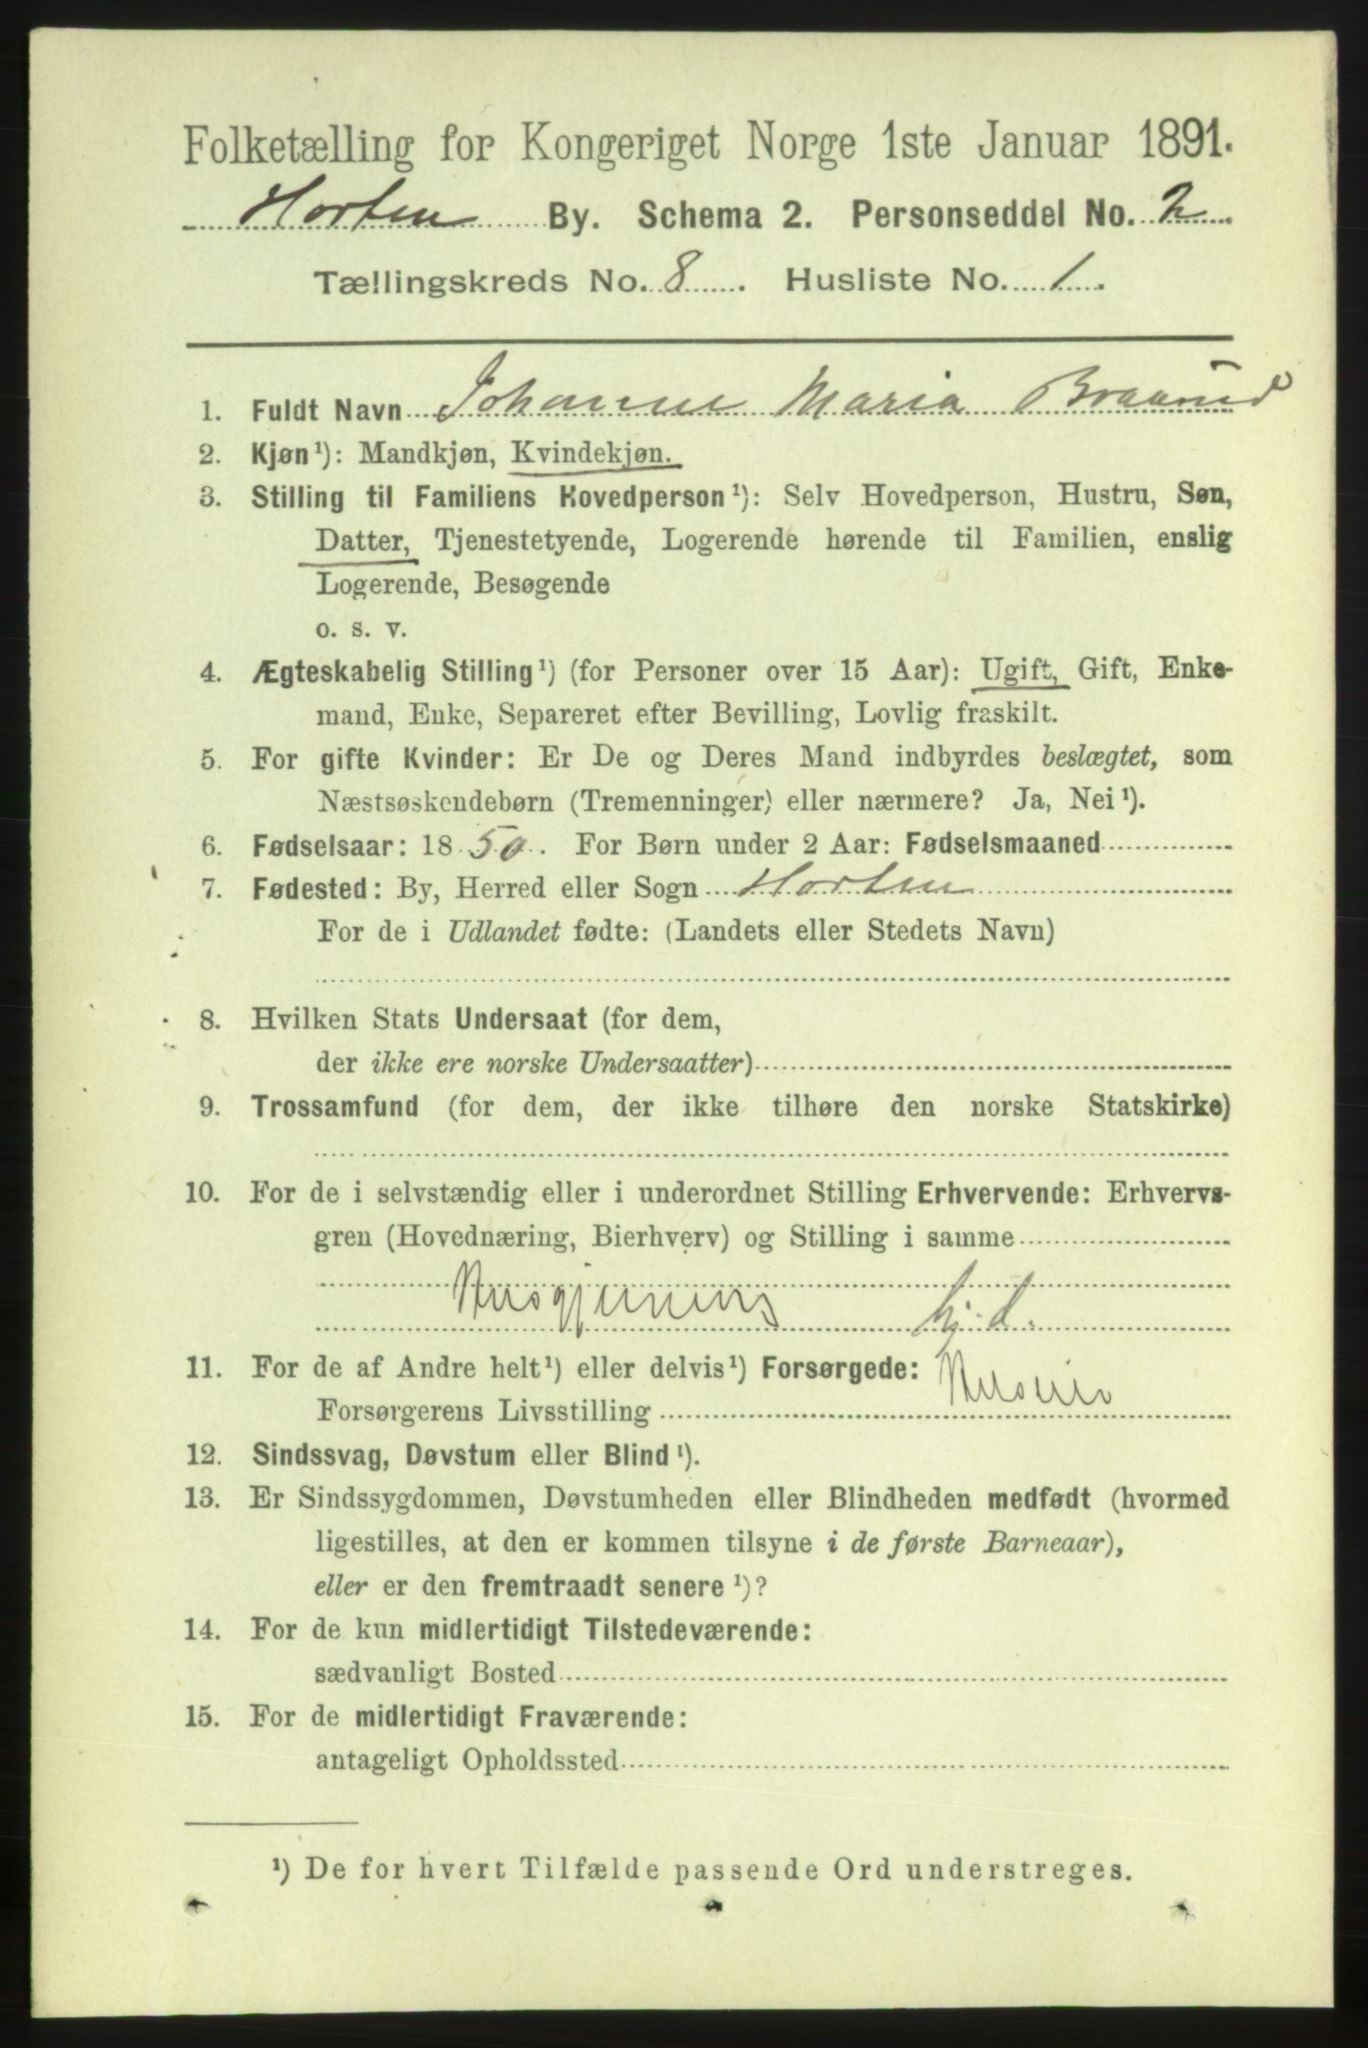 Folketælling for Kongeriget Norge 1ste Januar 1891.
Horten By. Schema 2. Personseddel No. 2
Tællingskreds No. 8. Husliste No. 1.
1. Fuldt Navn Johanne Maria
2. Kjøn¹): Mandkjøn, Kvindekjøn.
3. Stilling til Familiens Hovedperson¹): Selv Hovedperson, Hustru, Søn,
Datter, Tjenestetyende, Logerende hørende til Familien, enslig
Logerende, Besøgende
o. s. v.
4. Ægteskabelig Stilling¹) (for Personer over 15 Aar): Ugift, Gift, Enke-
mand, Enke, Separeret efter Bevilling, Lovlig fraskilt.
5. For gifte Kvinder: Er De og Deres Mand indbyrdes beslægtet, som
Næstsøskendebørn (Tremenninger) eller nærmere? Ja, Nei¹).
6. Fødselsaar: 1850. For Børn under 2 Aar: Fødselsmaaned
7. Fødested: By, Herred eller Sogn Horten
For de i Udlandet fødte: (Landets eller Stedets Navn)
8. Hvilken Stats Undersaat (for dem,
der ikke ere norske Undersaatter)
9. Trossamfund (for dem, der ikke tilhøre den norske Statskirke)
10. For de i selvstændig eller i underordnet Stilling Erhvervende: Erhvervs-
gren (Hovednæring, Bierhverv) og Stilling i samme
Husgjerning
11. For de af Andre helt¹) eller delvis¹) Forsørgede:
Forsørgerens Livsstilling
12. Sindssvag, Døvstum eller Blind¹).
13. Er Sindssygdommen, Døvstumheden eller Blindheden medfødt (hvormed
ligestilles, at den er kommen tilsyne i de første Barneaar),
eller er den fremtraadt senere¹)?
14. For de kun midlertidigt Tilstedeværende:
sædvanligt Bosted
15. For de midlertidigt Fraværende:
antageligt Opholdssted
¹) De for hvert Tilfælde passende Ord understreges.